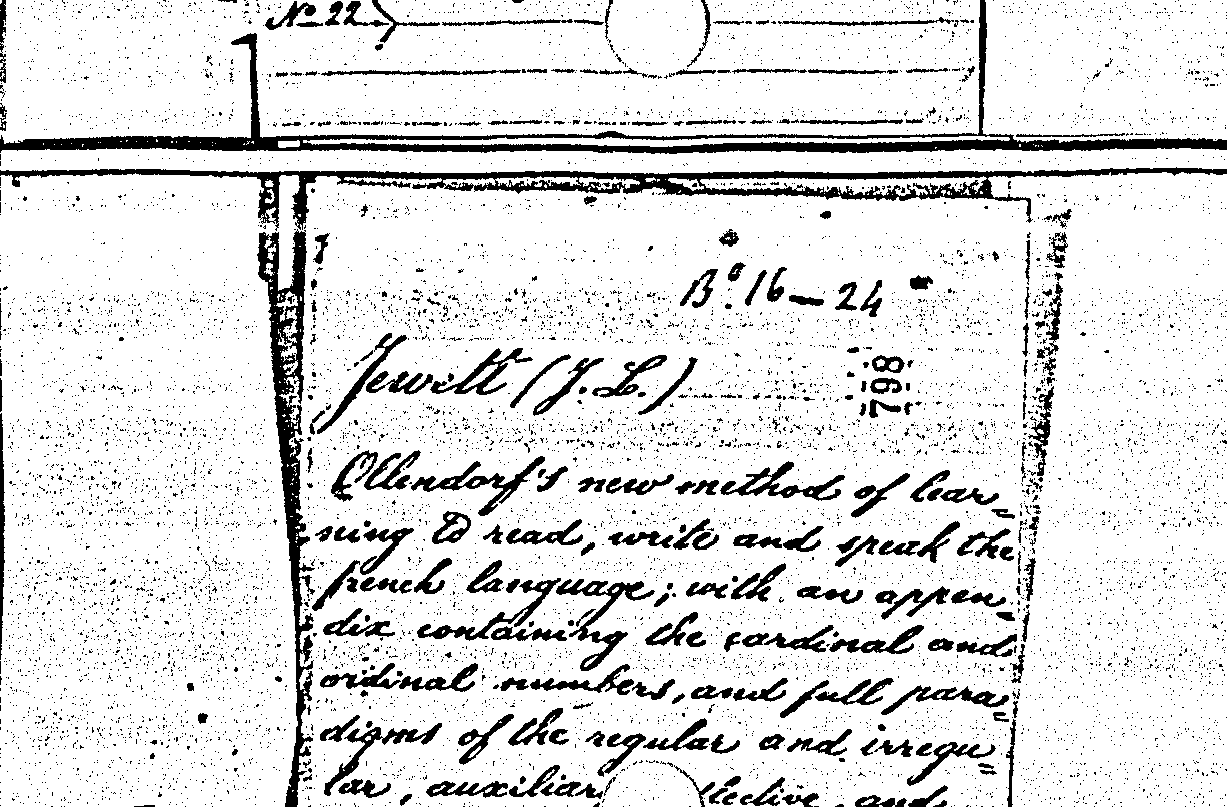 No 22
Bo. 16 — 24
Jewett (J. L.)
798
Ollendorf's new method of lear=
ning to read, write and speak the
french language; with an appen=
dix containing the cardinal and
ordinal numbers, and full para=
digms of the regular and irregu=
lar, auxiliar and